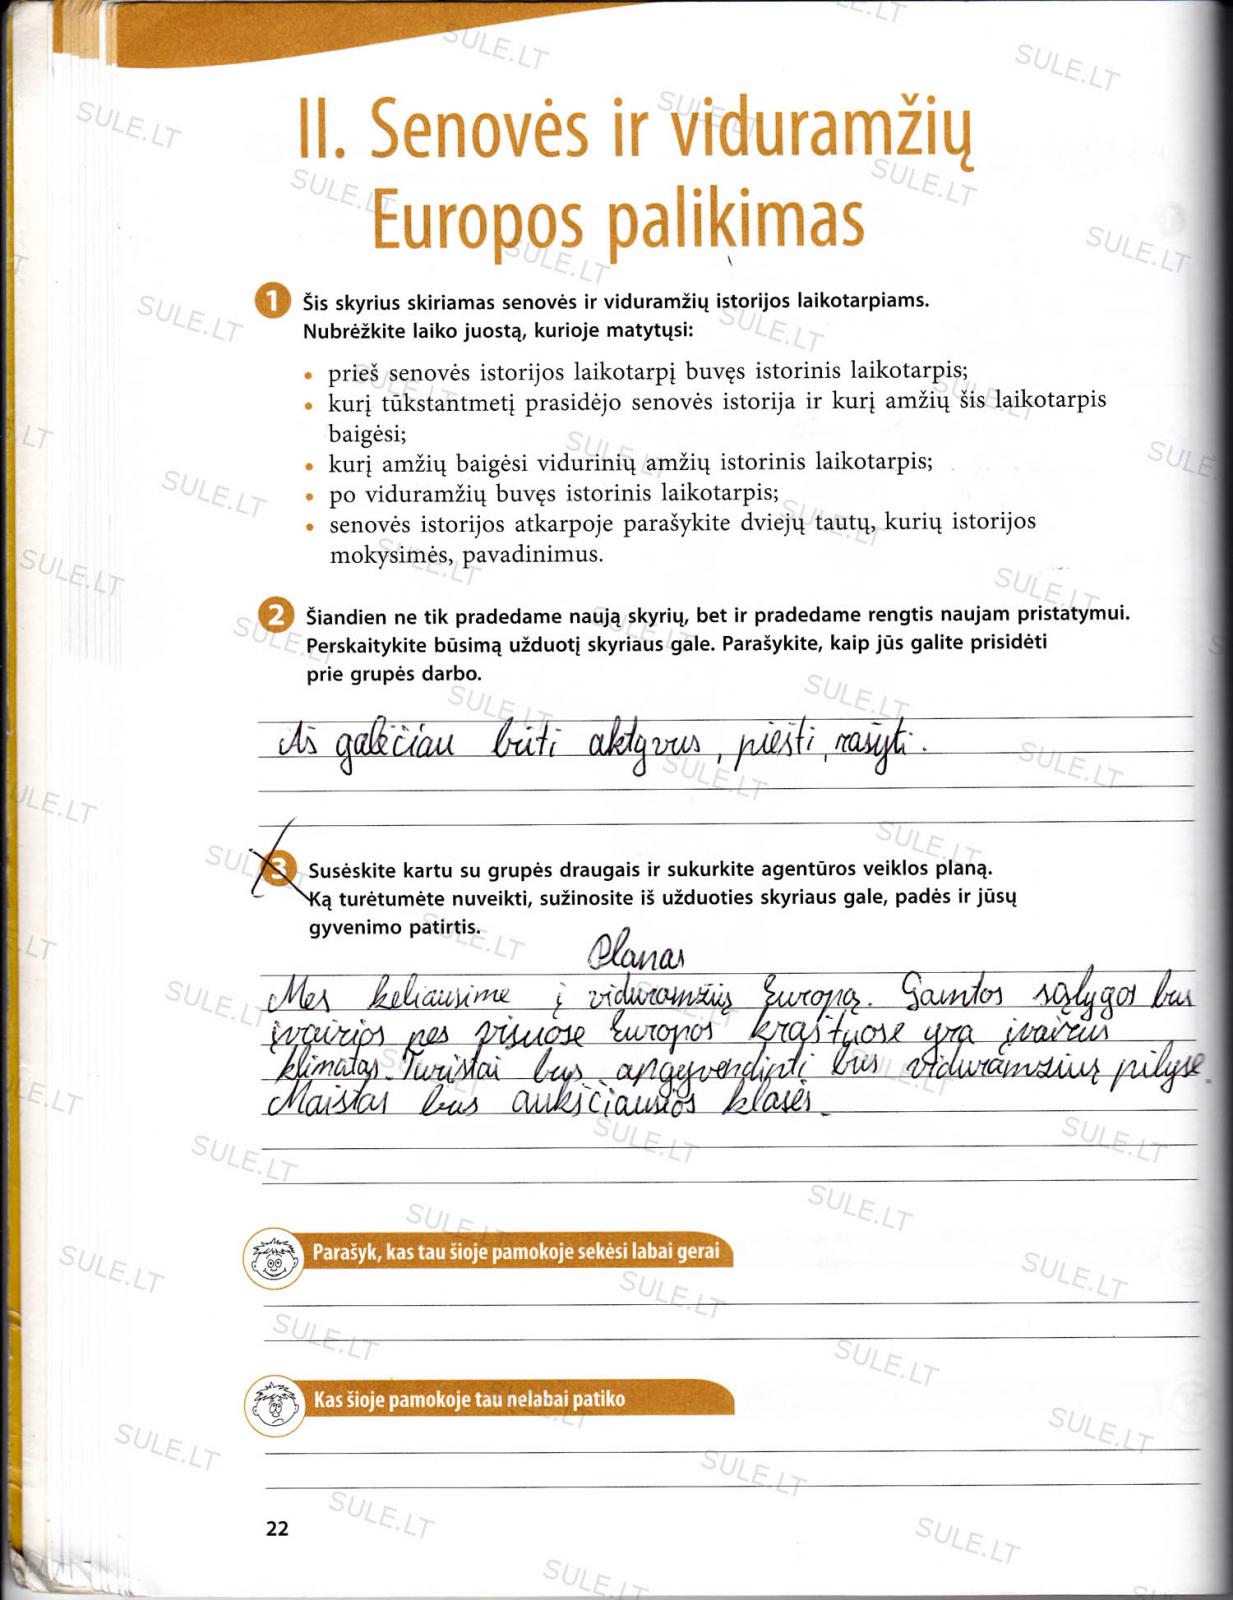 II. Senovės ir viduramžių
Europos palikimas
1 Šis skyrius skiriamas senovės ir viduramžių istorijos laikotarpiams.
Nubrėžkite laiko juostą, kurioje matytųsi:
• prieš senovės istorijos laikotarpį buvęs istorinis laikotarpis;
• kurį tūkstantmetį prasidėjo senovės istorija ir kurį amžių šis laikotarpis
baigėsi;
• kurį amžių baigėsi vidurinių amžių istorinis laikotarpis;
• po viduramžių buvęs istorinis laikotarpis;
• senovės istorijos atkarpoje parašykite dviejų tautų, kurių istorijos
mokysimės, pavadinimus.
2 Šiandien ne tik pradedame naują skyrių, bet ir pradedame rengtis naujam pristatymui.
Perskaitykite būsimą užduotį skyriaus gale. Parašykite, kaip jūs galite prisidėti
prie grupės darbo.
Aš galėčiau būti aktyvus, piešti, rašyti.
3 Susėskite kartu su grupės draugais ir sukurkite agentūros veiklos planą.
Ką turėtumėte nuveikti, sužinosite iš užduoties skyriaus gale, padės ir jūsų
gyvenimo patirtis.
Planas
Mes keliausime į viduramžių Europą. Gamtos sąlygos bus
įvairios nes visuose Europos kraštuose yra įvairus
klimatas. Turistai bus apgyvendinti bus viduramžių pilyse.
Maistas bus aukščiausios klasės.
Parašyk, kas tau šioje pamokoje sekėsi labai gerai
Kas šioje pamokoje tau nelabai patiko
22
SULE.LT